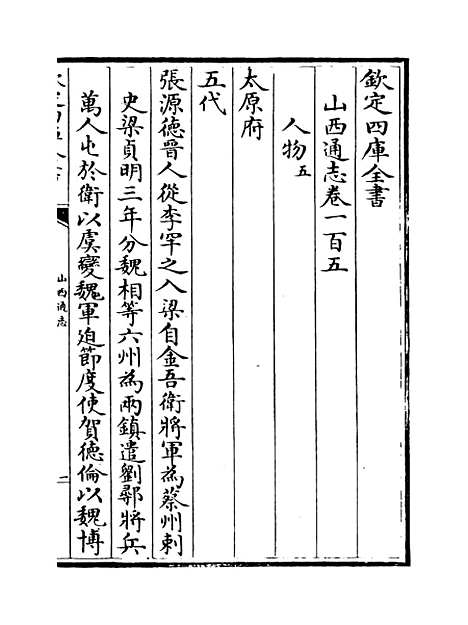 欽定四庫全書
山西通志卷一百五
人物五
太原府
五代
張源德晉人從李罕之入梁自金吾衛將軍為蔡州刺
史梁貞明三年分魏相等六州為兩鎮遣劉鄩將兵
萬人屯於衛以虞變魏軍迫節度使賀德倫以魏博
山西通志